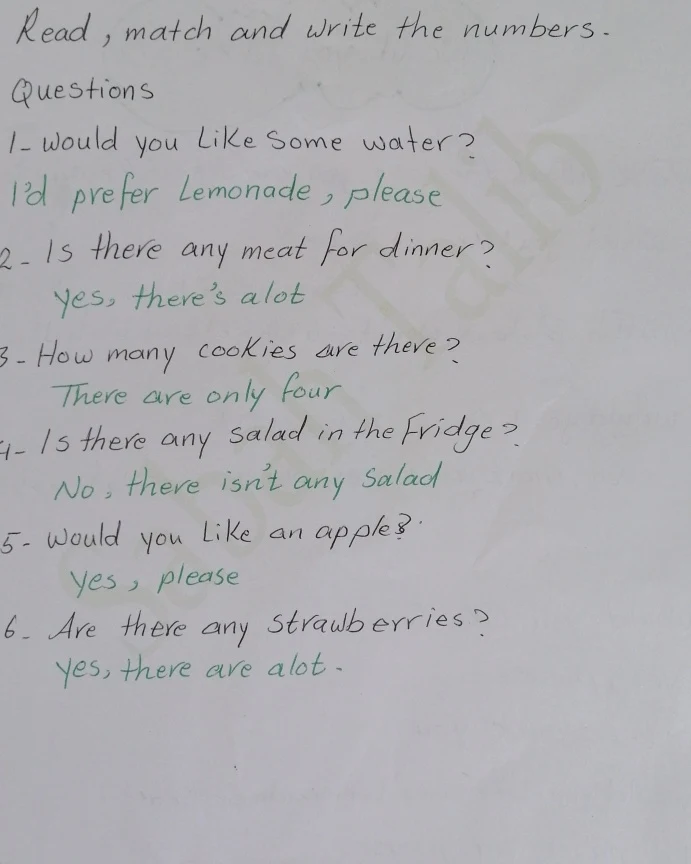 Read, match and write the numbers.
Questions
1- Would you Like Some water?
I'd prefer Lemonade, please
2- Is there any meat for dinner?
yes, there's alot
3- How many cookies are there?
There are only four
4- Is there any salad in the Fridge?
No, there isn't any Salad
5- Would you Like an apple?
yes, please
6- Are there any strawberries?
yes, there are alot.
Sabah Talib